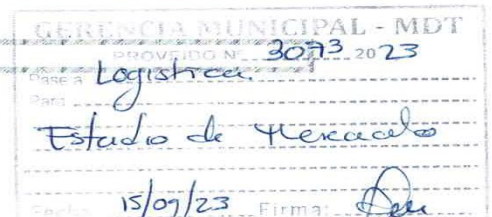 GERENCIA MUNICIPAL - MDT
PROVEIDO Nº 3073 2023
Pase a Logistica.
Para
Estudio de Mercado
Fecha 15/09/23 Firma: